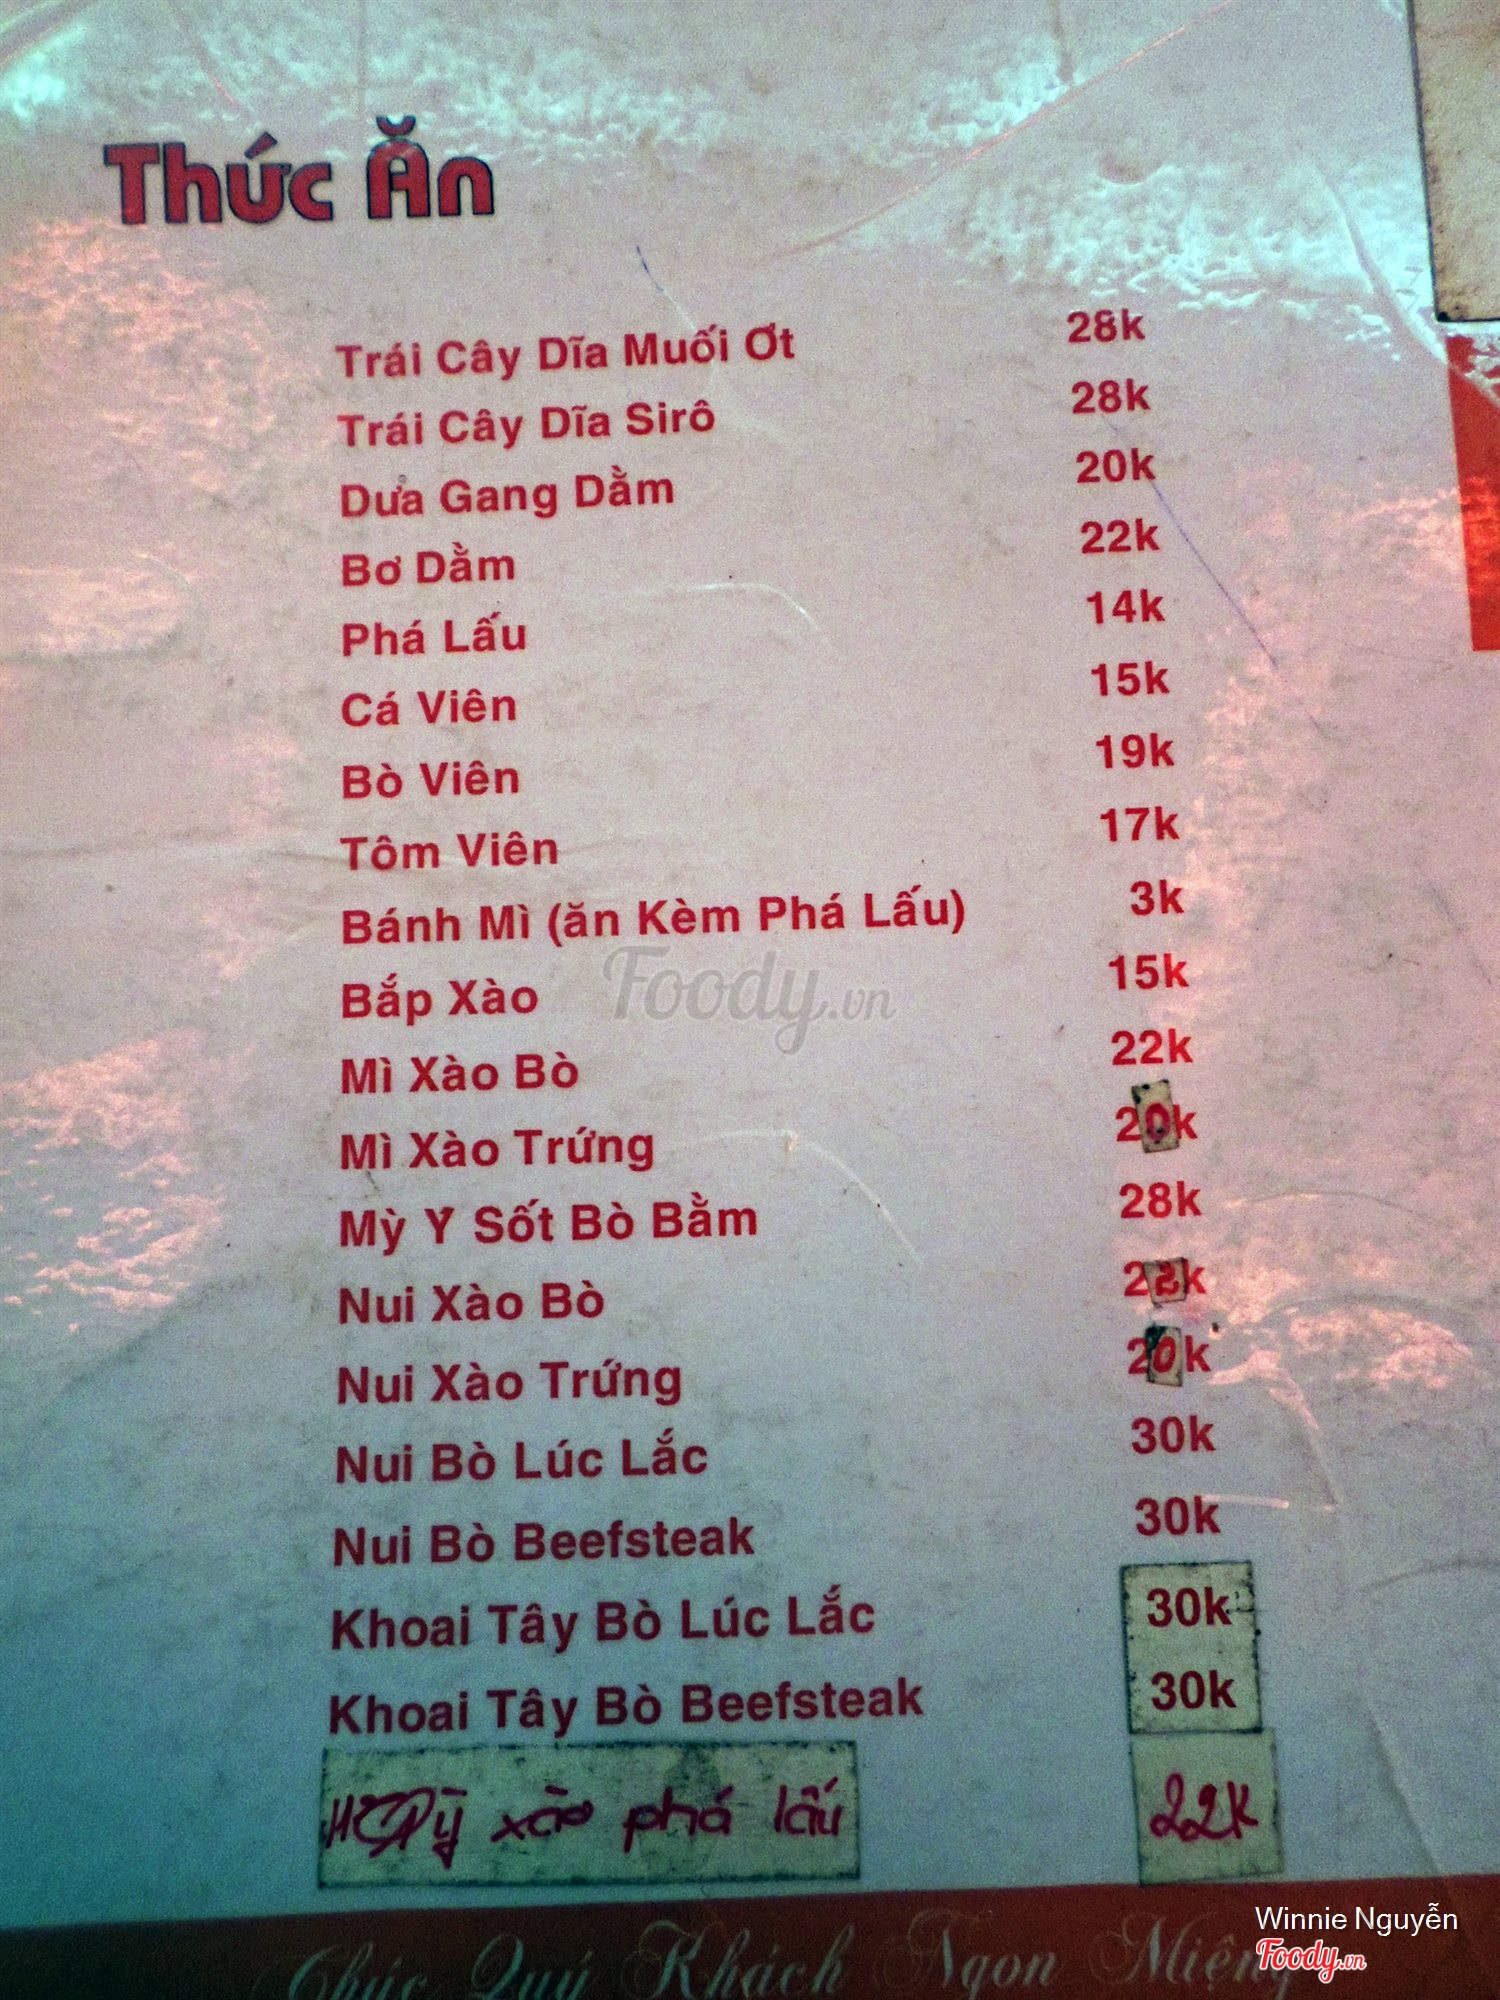 Thức Ăn
Trái Cây Dĩa Muối Ớt 28k
Trái Cây Dĩa Sirô 28k
Dưa Gang Dằm 20k
Bơ Dằm 22k
Phá Lấu 14k
Cá Viên 15k
Bò Viên 19k
Tôm Viên 17k
Bánh Mì (ăn Kèm Phá Lấu) 3k
Bắp Xào 15k
Mì Xào Bò 22k
Mì Xào Trứng 20k
Mỳ Ý Sốt Bò Bằm 28k
Nui Xào Bò 22k
Nui Xào Trứng 20k
Nui Bò Lúc Lắc 30k
Nui Bò Beefsteak 30k
Khoai Tây Bò Lúc Lắc 30k
Khoai Tây Bò Beefsteak 30k
xào phá lấu 22K
Chúc Quý Khách Ngon Miệng
Foody.vn
Winnie Nguyễn
Foody.vn